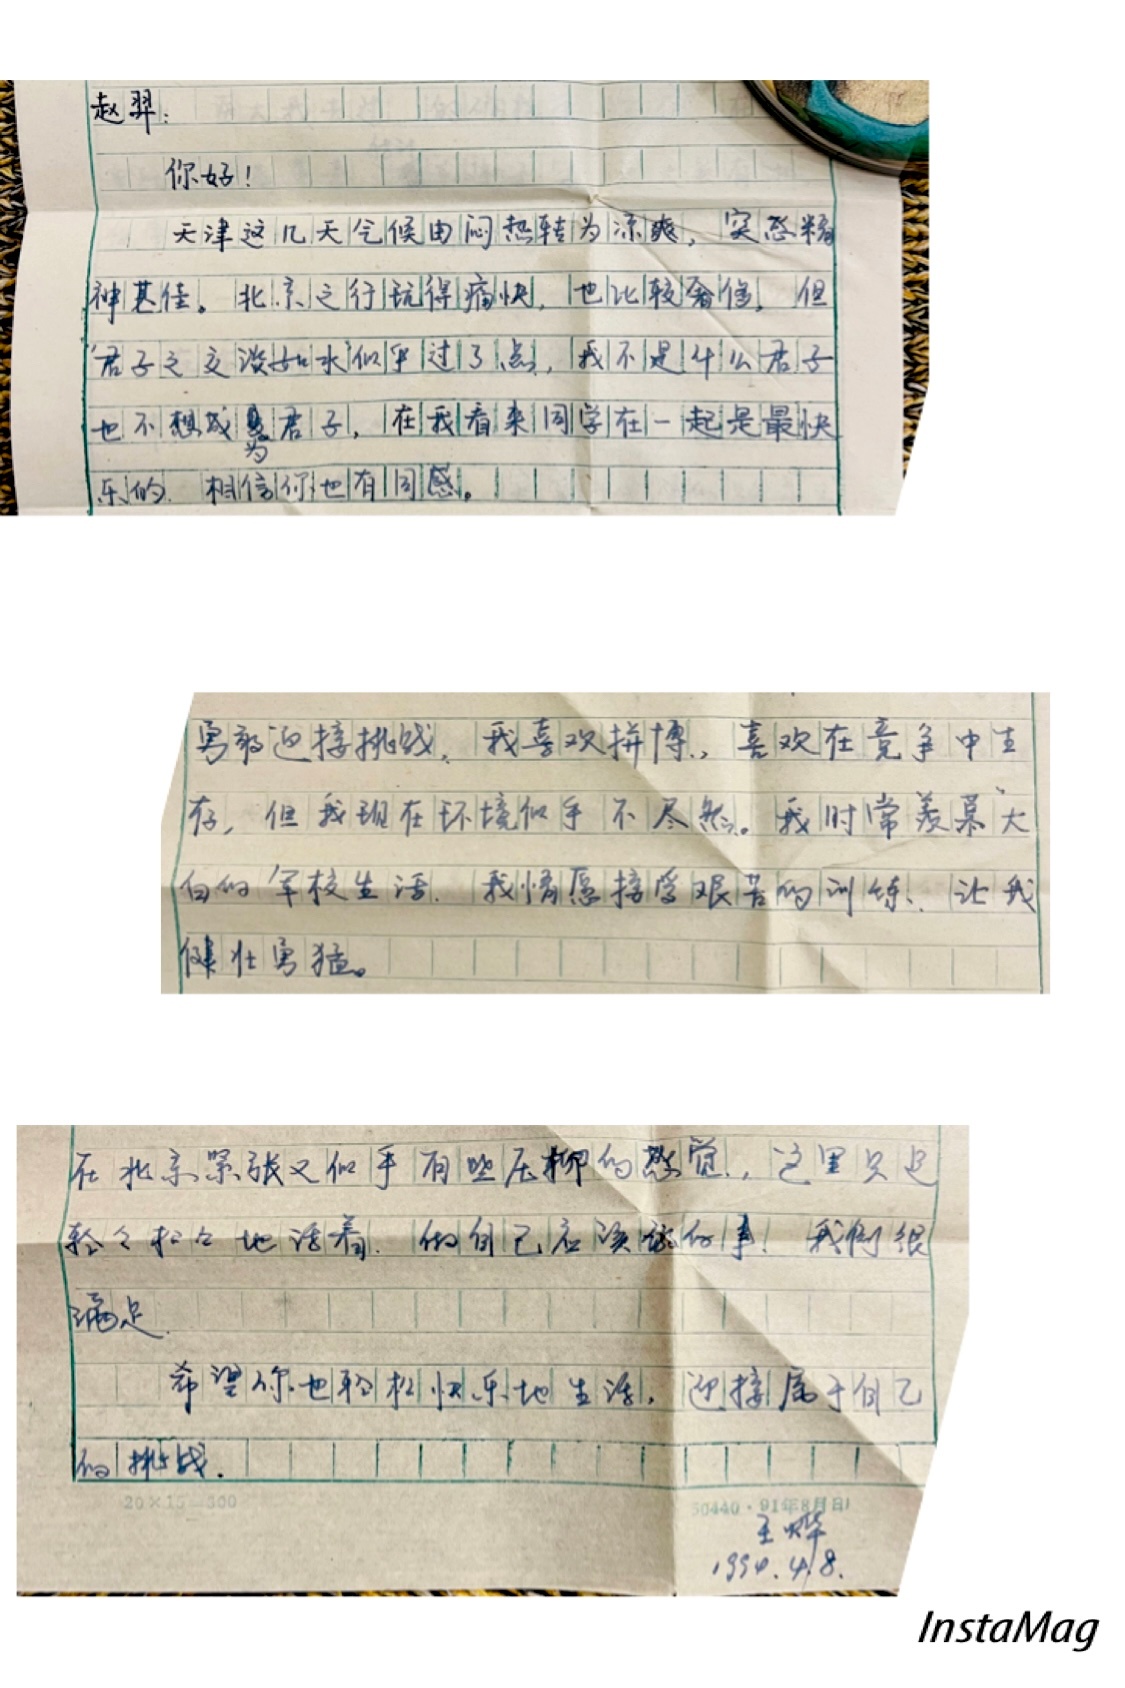 赵羿：
你好！
天津这几天气候由闷热转为凉爽，突感精
神甚佳。北京之行玩得痛快，也比较奢侈，但
“君子之交淡如水”似乎过了点，我不是什么君子
也不想成为君子，在我看来同学在一起是最快
乐的，相信你也有同感。
勇敢迎接挑战，我喜欢拼博，喜欢在竞争中生
存，但我现在环境似乎不尽然。我时常羡慕大
白的军校生活，我情愿接受艰苦的训练，让我
健壮勇猛。
在北京紧张又似乎有些压抑的感觉，这里只是
轻々松々地活着，做自己应该做的事！我倒很
满足。
希望你也轻松快乐地生活，迎接属于自己
的挑战。
20×15=300
50440·91年8月印
王烨
1994.4.8.
InstaMag